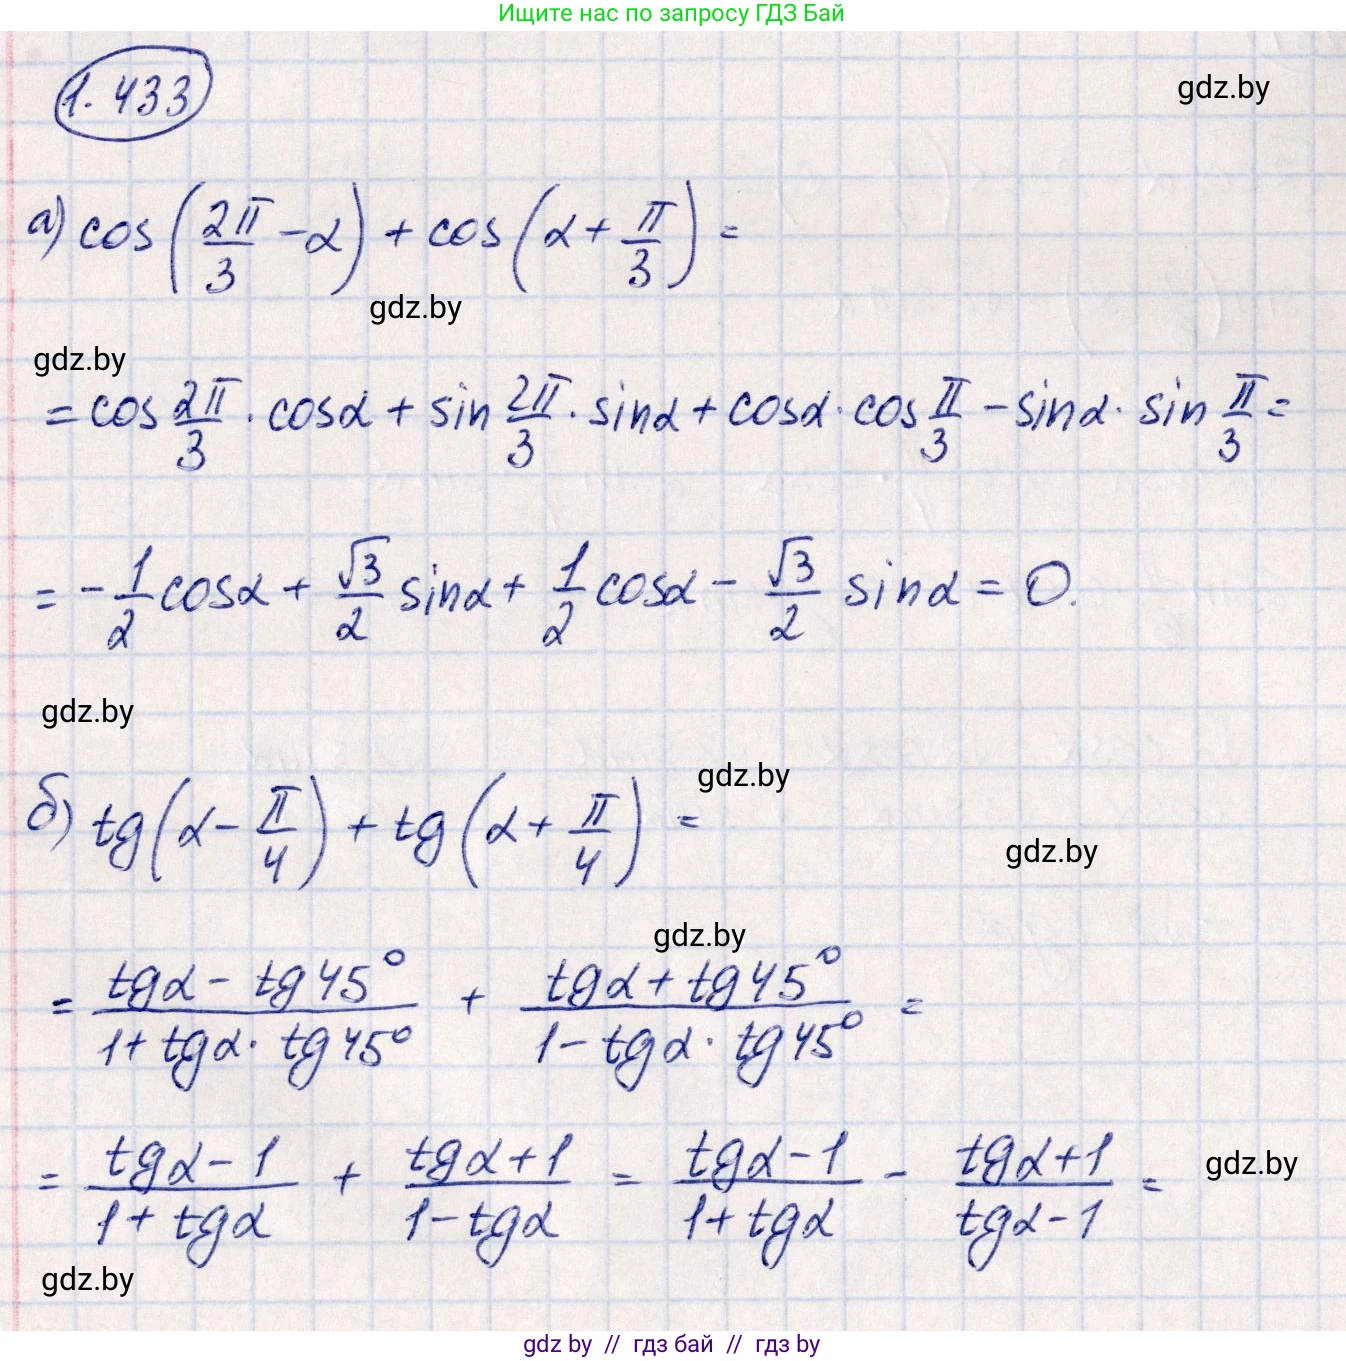 Ищите нас по запросу ГДЗ Бай
1.433
gdz.by
а) cos(2π/3 - α) + cos(α + π/3) =
gdz.by
gdz.by
= cos 2π/3 · cosα + sin 2π/3 · sinα + cosα · cos π/3 - sinα · sin π/3 =
= -1/2 cosα + √3/2 sinα + 1/2 cosα - √3/2 sinα = 0.
gdz.by
gdz.by
б) tg(α - π/4) + tg(α + π/4) =
gdz.by
gdz.by
= (tgα - tg45°)/(1 + tgα · tg45°) + (tgα + tg45°)/(1 - tgα · tg45°) =
= (tgα - 1)/(1 + tgα) + (tgα + 1)/(1 - tgα) = (tgα - 1)/(1 + tgα) - (tgα + 1)/(tgα - 1) =
gdz.by
gdz.by
gdz by // гдз бай // гдз by